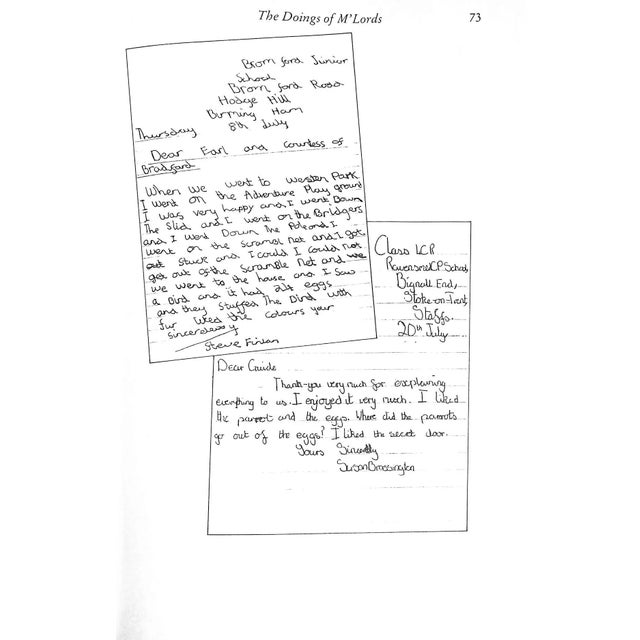 The Doings of M'Lords 73
Bromford Junior
School
Bromford Road
Hodge Hill
Burning Ham
Thursday 8th July
Dear Earl and Courtess of
Bradford
When we went to Westen Park
I went on the Adventure Play ground
I was very happy and I went Down
The Slid and I went on the Bridgers
and I went Down The Pole and I
went on the scramsl net and I got
out Stuck and I could I could not
get out of the Scramble net and we
we went to the house and I saw
a Bird and it had 24 eggs
and they stuffed The Bird with
fur liked the colours your
sincerelessy
Steve Finlan
Class LCR
Ravensmead CP School,
Bignall End,
Stoke-on-Trent,
Staffs.
20th July
Dear Guide
Thank-you very much for exsplaining
everything to us. I enjoyed it very much. I liked
the parrot and the eggs. Where did the parrots
go out of the eggs? I liked the secret door.
Yours Sincerelly
Susan Brassington